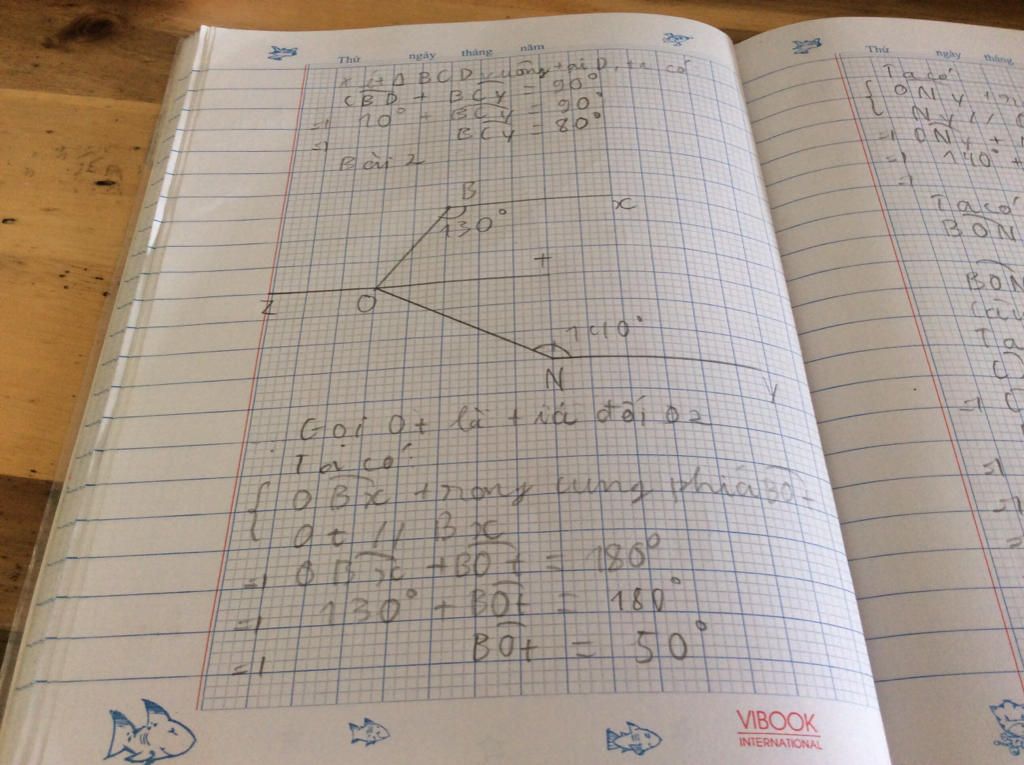 Thứ ngày tháng năm
x ét Δ BCD vuông tại D, ta có
CBD + BCY = 90°
=> 10° + BCY = 90°
=> BCY = 80°
Bài 2
B
130°
x
t
z O
140°
N
y
Gọi Ot là tia đối Oz
Ta có:
{ OBx trong cùng phía BOt
Ot // Bx
=> OBx + BOt = 180°
=> 130° + BOt = 180°
=> BOt = 50°
VIBOOK
INTERNATIONAL
Thứ ngày tháng
Ta có
{ ONy
Ny //
=> ONy +
=> 140° +
=>
Ta có
BON
BON
Ta
=>
=>
=>